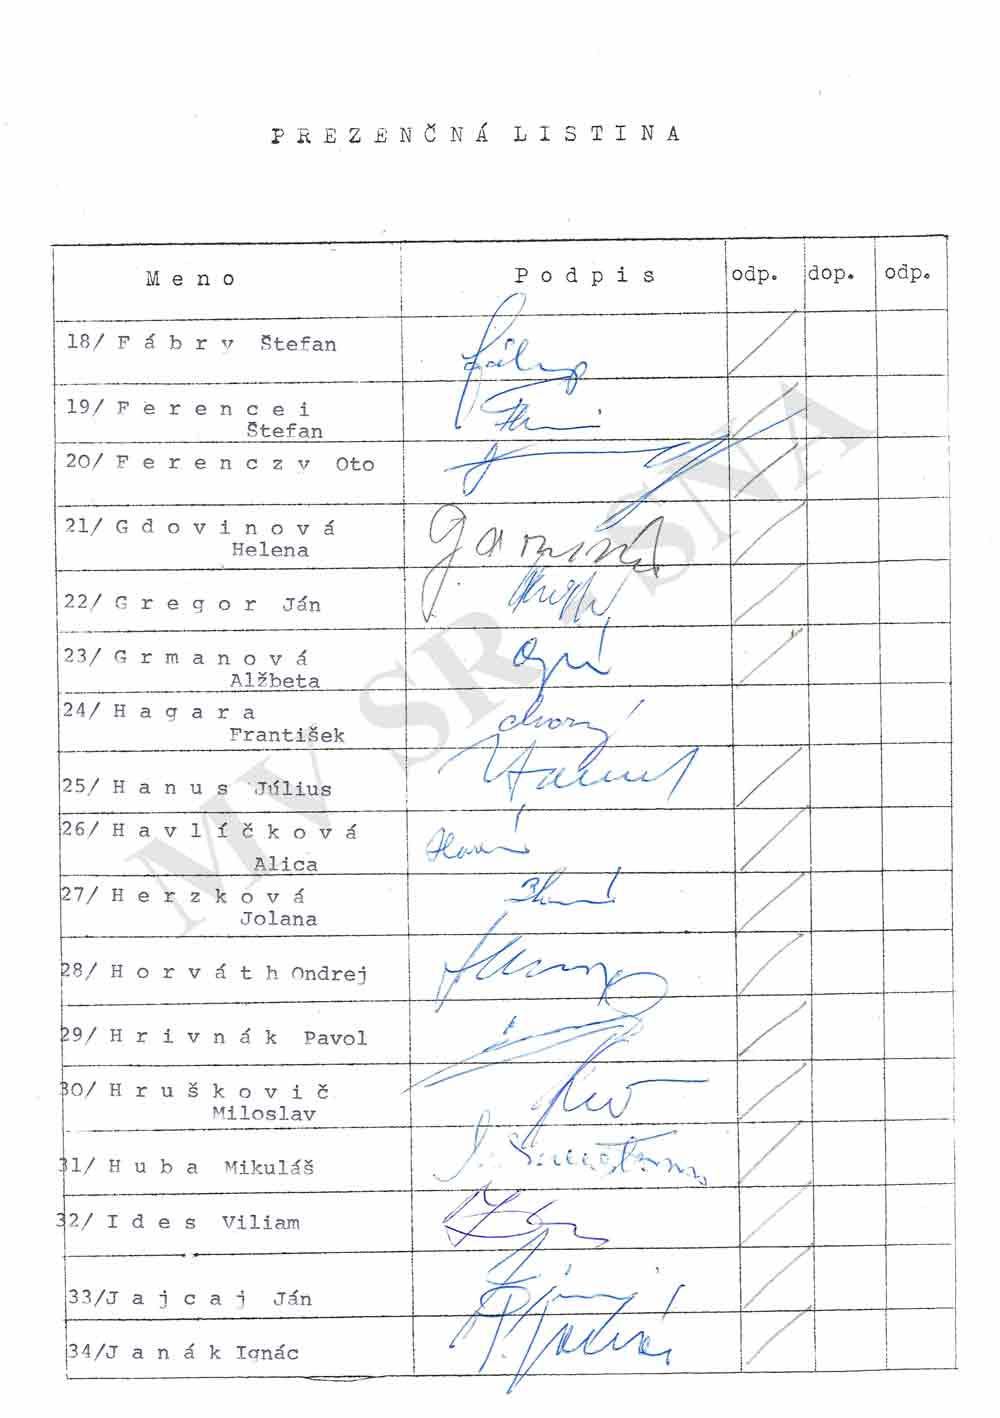 PREZENČNÁ LISTINA
Meno Podpis odp. dop. odp.
18/ Fábry Štefan
19/ Ferencei
Štefan
20/ Ferenczy Oto
21/ Gdovinová
Helena
22/ Gregor Ján
23/ Grmanová
Alžbeta
24/ Hagara chorý
František
25/ Hanus Július
26/ Havlíčková
Alica
27/ Herzková
Jolana
28/ Horváth Ondrej
29/ Hrivnák Pavol
30/ Hruškovič
Miloslav
31/ Huba Mikuláš
32/ Ides Viliam
33/Jajcaj Ján
34/Janák Ignác
MV SR, SNA